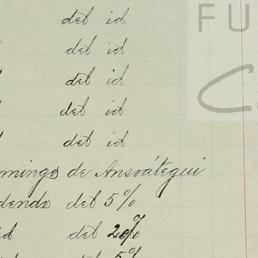 del id
del id
del id
del id
del id
omingo de Ansoátegui
dendo del 5%
del 20%
del 5%
FU